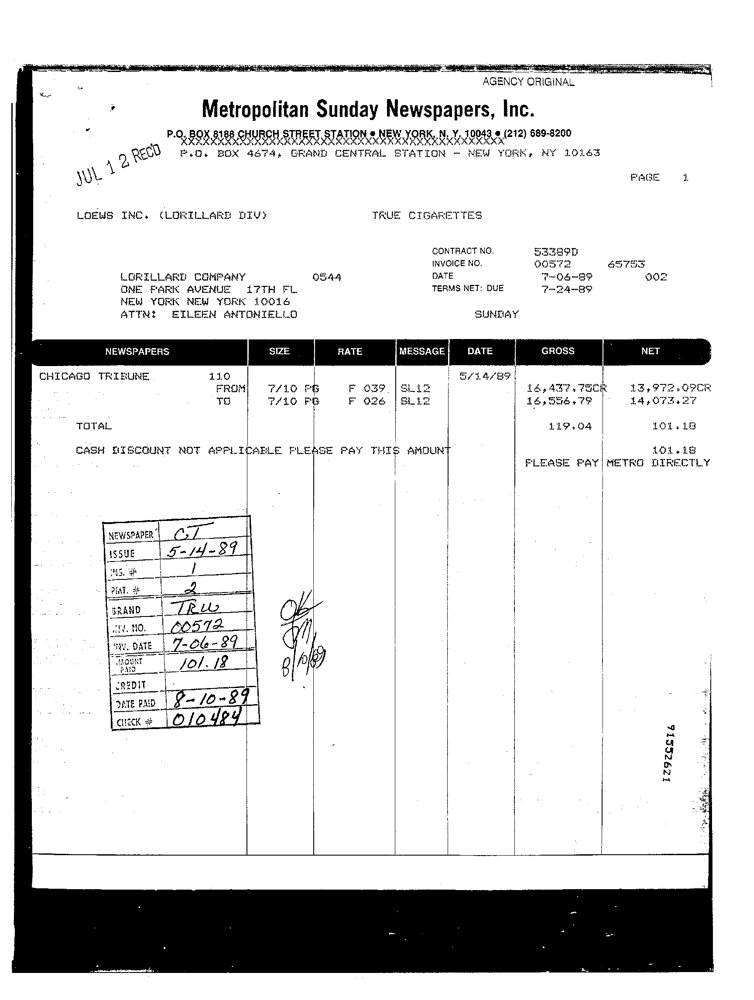 AGENCY ORIGINAL
Metropolitan Sunday Newspapers, Inc.
P.O. BOX 8188 CHURCH STREET STATION • NEW YORK, N. Y. 10043 • (212) 689-8200
P.O. BOX 4674, GRAND CENTRAL STATION - NEW YORK, NY 10163
JUL 12 REC'D
PAGE 1
LOEWS INC. (LORILLARD DIV) TRUE CIGARETTES
CONTRACT NO. 53389D
INVOICE NO. 00572 65753
LORILLARD COMPANY 0544 DATE 7-06-89 002
ONE PARK AVENUE 17TH FL TERMS NET: DUE 7-24-89
NEW YORK NEW YORK 10016
ATTN: EILEEN ANTONIELLO SUNDAY
NEWSPAPERS SIZE RATE MESSAGE DATE GROSS NET
CHICAGO TRIBUNE 110 5/14/89
FROM 7/10 PG F 039 SL12 16,437.75CR 13,972.09CR
TO 7/10 PG F 026 SL12 16,556.79 14,073.27
TOTAL 119.04 101.18
CASH DISCOUNT NOT APPLICABLE PLEASE PAY THIS AMOUNT 101.18
PLEASE PAY METRO DIRECTLY
NEWSPAPER CT
ISSUE 5-14-89
INS. # 1
PMT. # 2
BRAND TRU
INV. NO. 00572
INV. DATE 7-06-89
AMOUNT PAID 101.18
CREDIT
DATE PAID 8-10-89
CHECK # 010484
OK
8/10/89
91552621